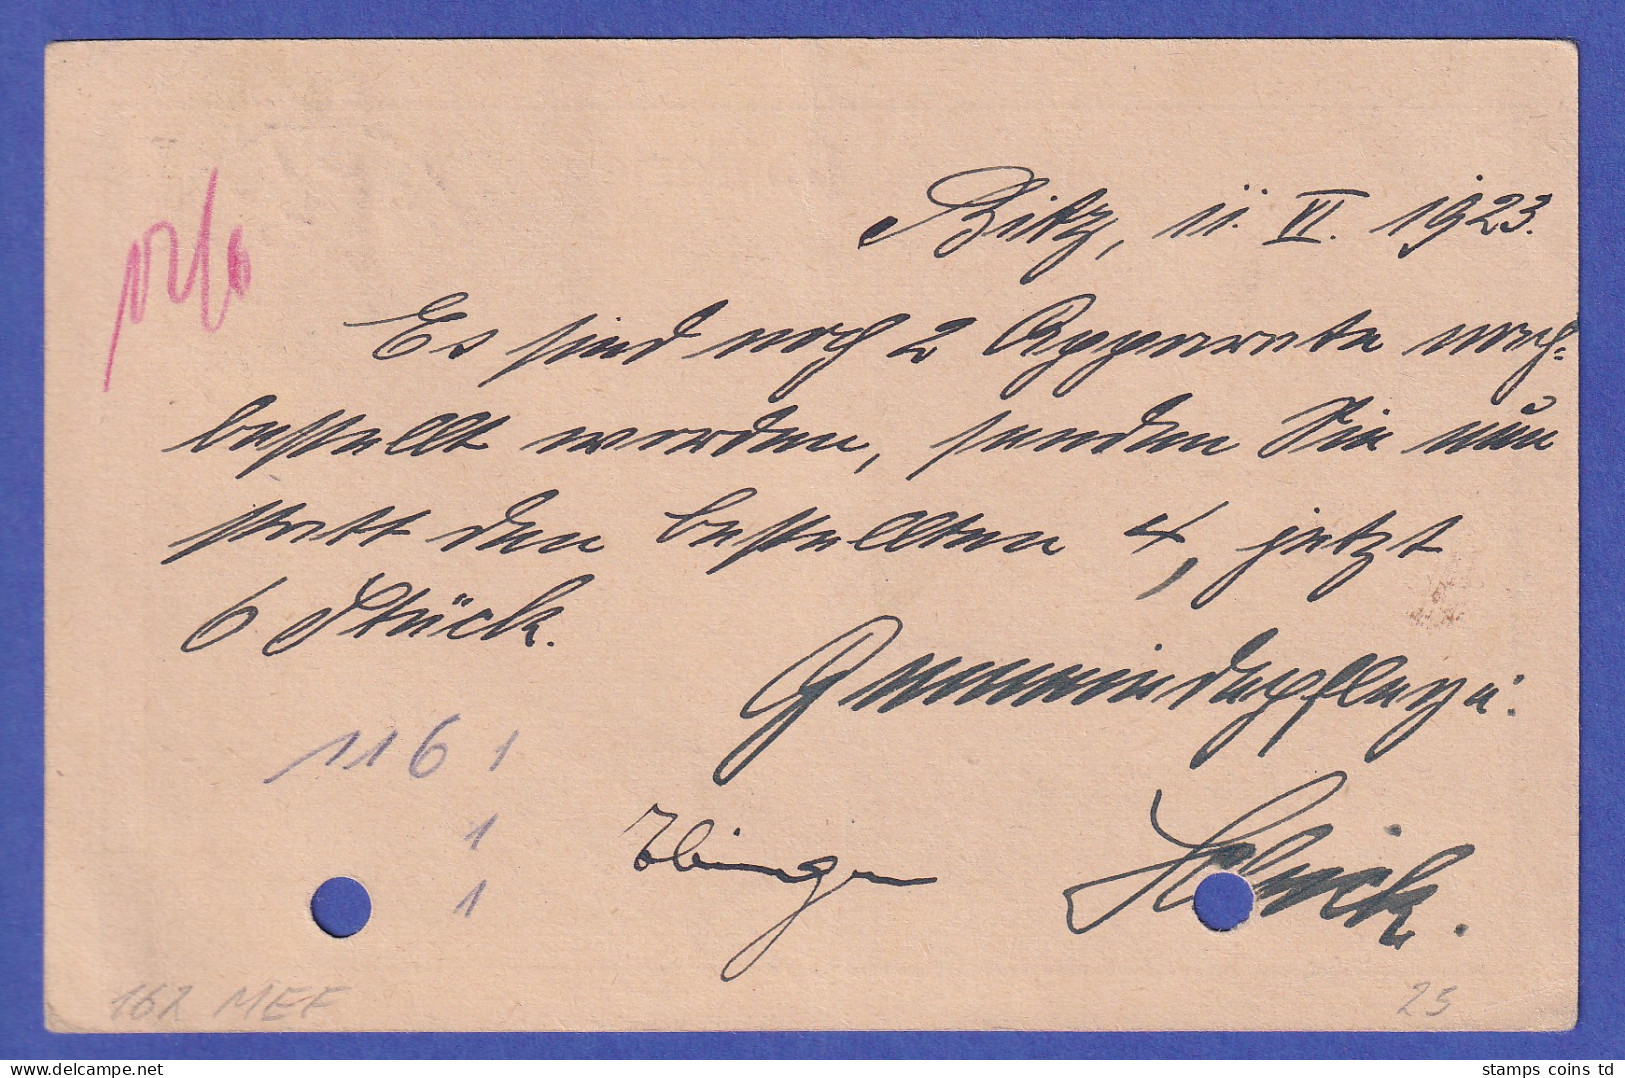 Bitz, 11. VI. 1923.
Es sind noch 2 Apparate nach-
bestellt worden, senden Sie nun
statt den bestellten 4, jetzt
6 Stück.
Gemeindepflege:
116 1
1
1
162 MEF
25
stamps coins td